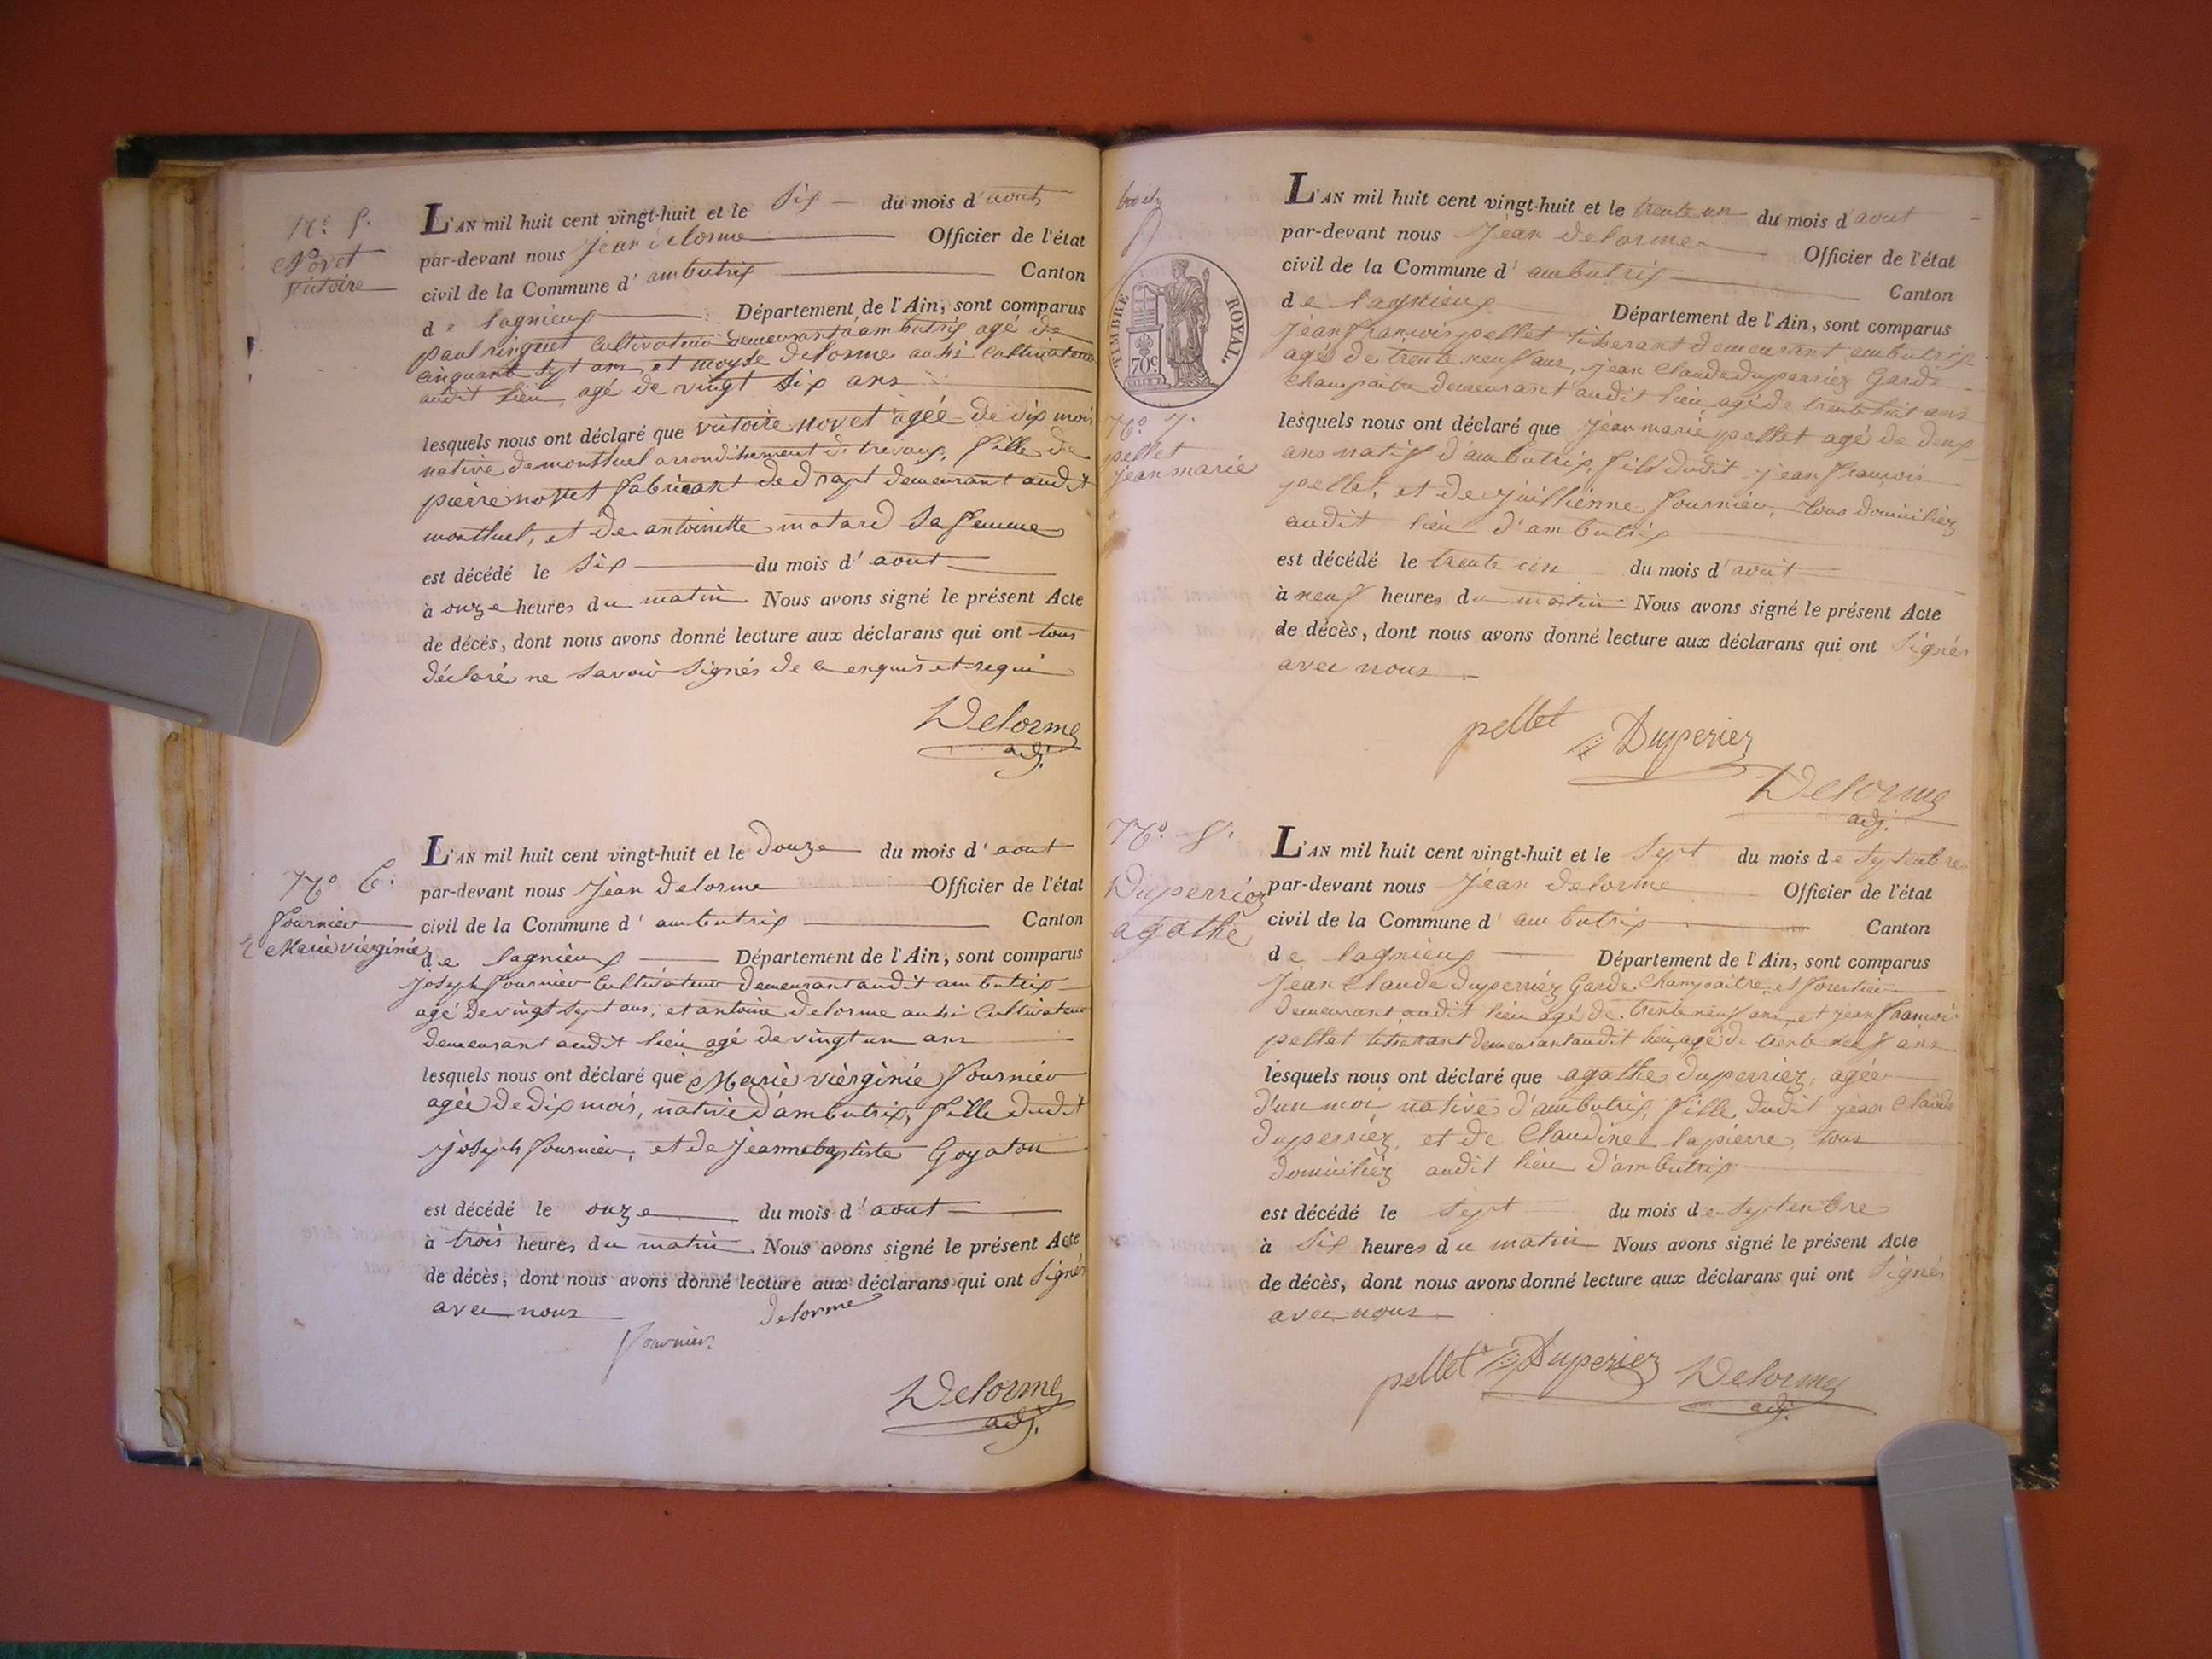 N.º 5.
Novet
Victoire
L'AN mil huit cent vingt-huit et le six du mois d'aout
par-devant nous Jean delorme Officier de l'état
civil de la Commune d'ambutrix Canton
de lagnieux Département de l'Ain, sont comparus
paul ringuet Cultivateur demeurant a ambutrix agé de
cinquant sept ans et moyse delorme aussi Cultivateur
audit lieu, agé de vingt six ans
lesquels nous ont déclaré que victoire novet agée de dix mois
native de montluel arrondissement de trevoux, fille de
pierre novet fabricant de drapt demeurant audit
montluel, et de antoinette motard sa femme
est décédé le six du mois d'aout
à onze heures du matin Nous avons signé le présent Acte
de décès, dont nous avons donné lecture aux déclarans qui ont tous
déclaré ne savoir signés de ce enquis et requi
Delorme
adj.
N.º 6.
fournier
Marie vierginie
L'AN mil huit cent vingt-huit et le douze du mois d'aout
par-devant nous Jean delorme Officier de l'état
civil de la Commune d'ambutrix Canton
de lagnieux Département de l'Ain, sont comparus
joseph fournier Cultivateur demeurant audit ambutrix
agé de vingt sept ans, et antoine delorme aussi Cultivateur
demeurant audit lieu agé de vingt un ans
lesquels nous ont déclaré que Marie vierginie fournier
agée de dix mois, native d'ambutrix, fille dudit
joseph fournier, et de jeanne baptiste Goyaton
est décédé le onze du mois d'aout
à trois heures du matin Nous avons signé le présent Acte
de décès, dont nous avons donné lecture aux déclarans qui ont signés
avec nous delorme
fournier
Delorme
adj.
TIMBRE ROYAL.
70c.
N.º 7.
pellet
jean marie
L'AN mil huit cent vingt-huit et le trente un du mois d'aout
par-devant nous Jean delorme Officier de l'état
civil de la Commune d'ambutrix Canton
de lagnieux Département de l'Ain, sont comparus
jean françois pellet tisserant demeurant ambutrix
agés de trente neuf ans, jean Claude duperriez Garde
Champaitre demeurant audit lieu agé de trente huit ans
lesquels nous ont déclaré que jean marie pellet agé de deux
ans natif d'ambutrix, fils dudit jean francois
pellet, et de juillienne fournier, tous domiciliez
audit lieu d'ambutrix
est décédé le trente un du mois d'aout
à neuf heures du matin Nous avons signé le présent Acte
de décès, dont nous avons donné lecture aux déclarans qui ont signés
avec nous
pellet Duperiez
Delorme
adj.
N.º 8.
Duperriez
agathe
L'AN mil huit cent vingt-huit et le sept du mois de septenbre
par-devant nous Jean delorme Officier de l'état
civil de la Commune d'ambutrix Canton
de lagnieux Département de l'Ain, sont comparus
jean Claude duperriez Garde Champaitre et forestier
demeurant audit lieu agé de trente neuf ans et jean francois
pellet tisserant demeurant audit lieu, agé de trente neuf ans
lesquels nous ont déclaré que agathe duperriez, agée
d'un moi native d'ambutrix, fille dudit jean Claude
duperriez, et de Claudine lapierre, tous
domiciliez audit lieu d'ambutrix
est décédé le sept du mois de septenbre
à six heures du matin Nous avons signé le présent Acte
de décès, dont nous avons donné lecture aux déclarans qui ont signés
avec nous
pellet Duperiez Delorme
adj.